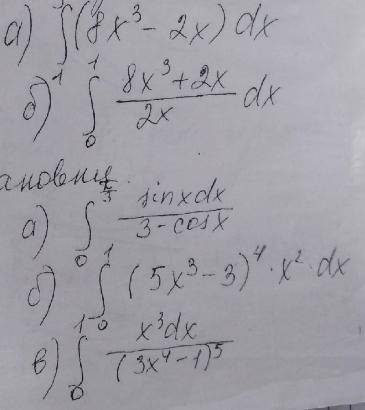 а) ∫₋₁ (8x³ - 2x) dx
б) ∫₀¹ (8x³ + 2x)/(2x) dx
ановения
а) ∫₀^(π/3) (sinx dx)/(3 - cosx)
б) ∫₀¹ (5x³ - 3)⁴ · x² · dx
в) ∫₀¹ (x³dx)/((3x⁴ - 1)⁵)